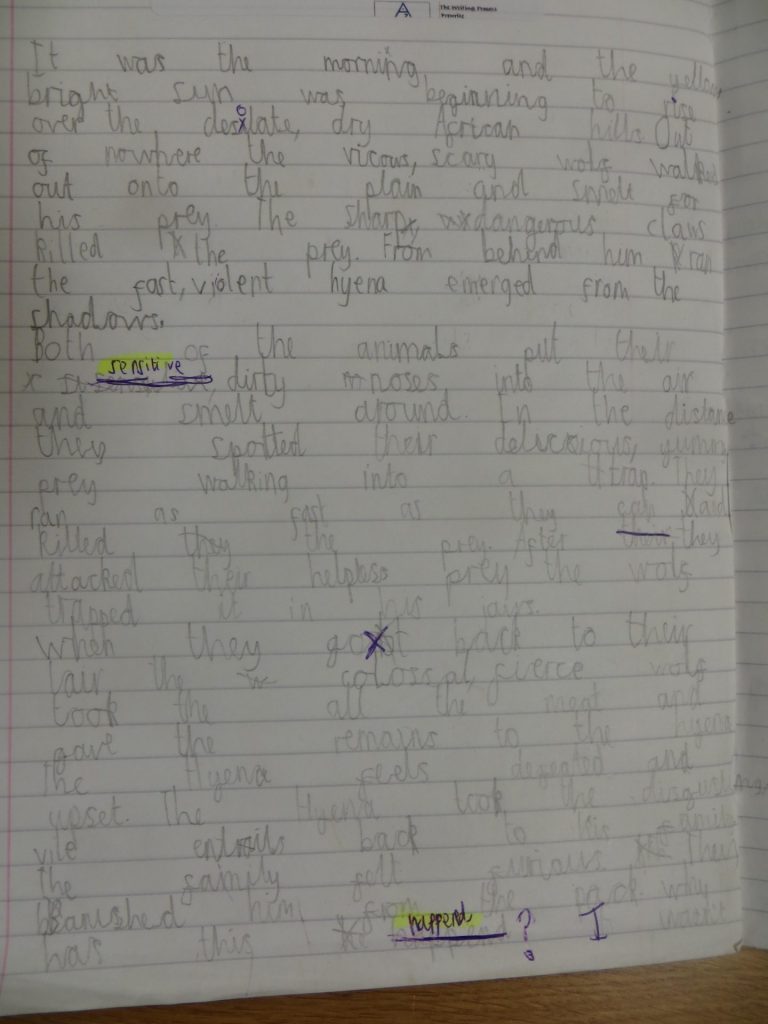 A The Writing Process
Rewrite
It was the morning, and the yellow
bright sun was beginning to rise
over the desolate, dry African hills. Out
of nowhere the vicous, scary wolf walked
out onto the plain and smelt for
his prey. The sharp, dangerous claws
killed the prey. From behend him ran
the fast, violent hyena emerged from the
shadows.
Both of the animals put their
sensitive, dirty noses into the air
and smelt around. In the distane
they spotted their delicious, yummy
prey walking into a trap. They
ran as fast as they can and
killed they the prey. After they
attacked their helpless prey the wolf
trapped it in his jaws.
When they got back to their
lair, the colossal, fierce wolf
took the all the meat and
gave the remains to the hyena
The Hyena feels defeated and
upset. The Hyena took the disgusting,
vile entrails back to his family
The family felt furious They
banished him from the pack. Why
has this happend? I wasn't